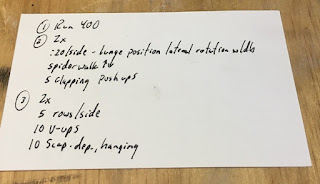 ① Run 400
② 2x
:20/side - lunge position lateral rotation w/db
spiderwalk
5 clapping pushups
③ 2x
5 rows/side
10 V-ups
10 Scap. dep., hanging